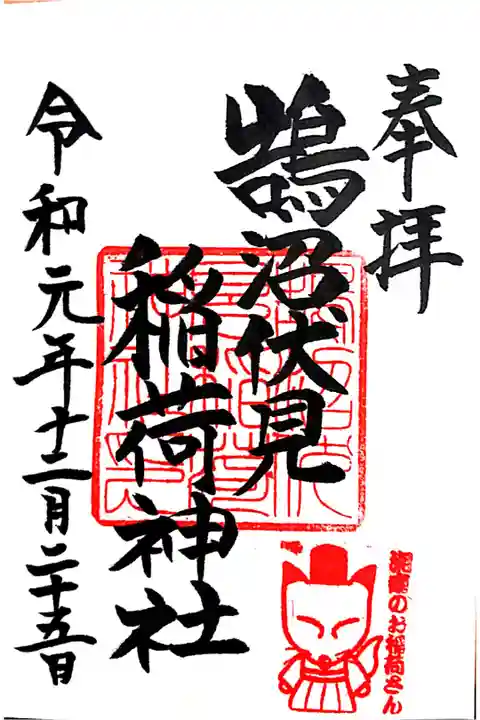 奉拝
鵠沼伏見
稲荷神社
令和元年十二月二十五日
のお稲荷さん